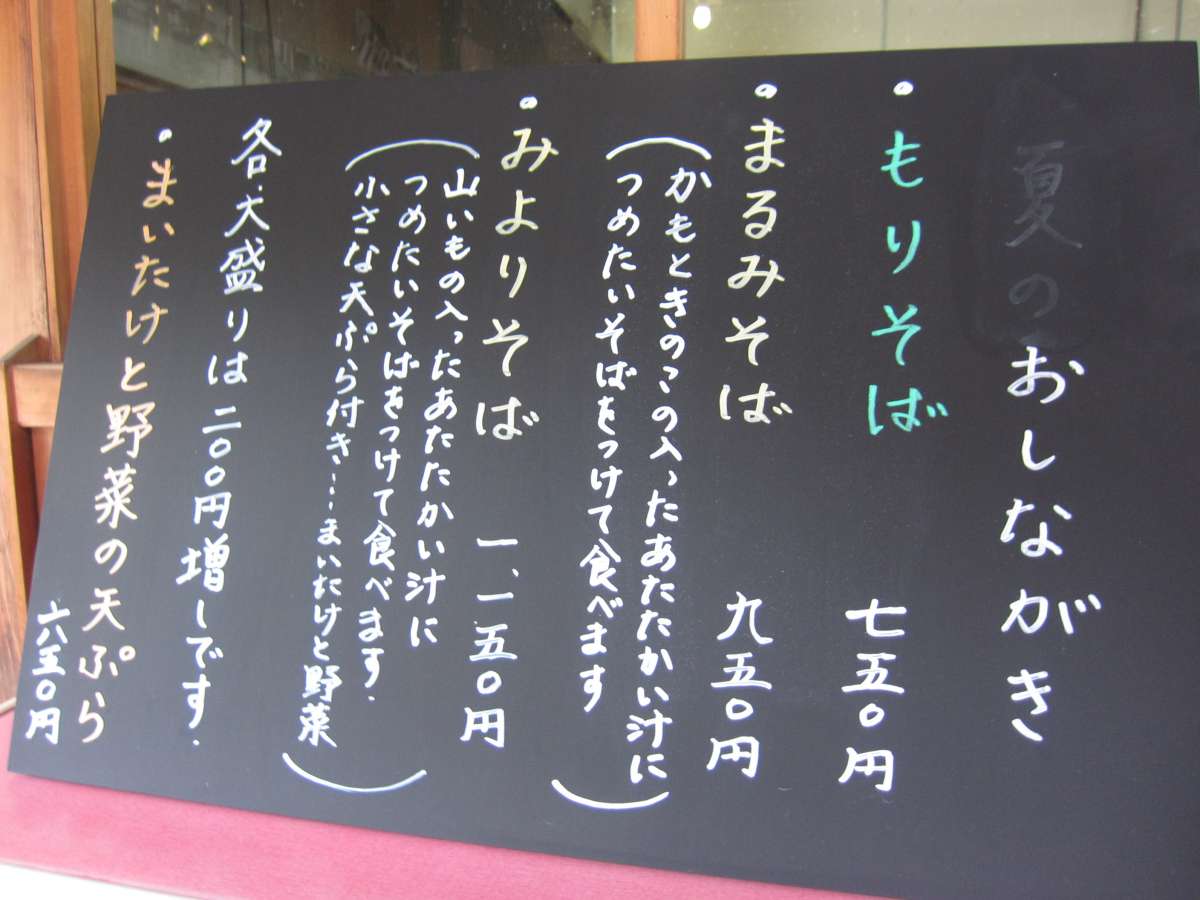 夏の
おしながき
・もりそば 七五〇円
・まるみそば 九五〇円
(かもときのこの入ったあたたかい汁に
つめたいそばをつけて食べます)
・みよりそば 一、一五〇円
(山いもの入ったあたたかい汁に
つめたいそばをつけて食べます.
小さな天ぷら付き…まいたけと野菜)
各、大盛りは二〇〇円増しです.
・まいたけと野菜の天ぷら
六五〇円